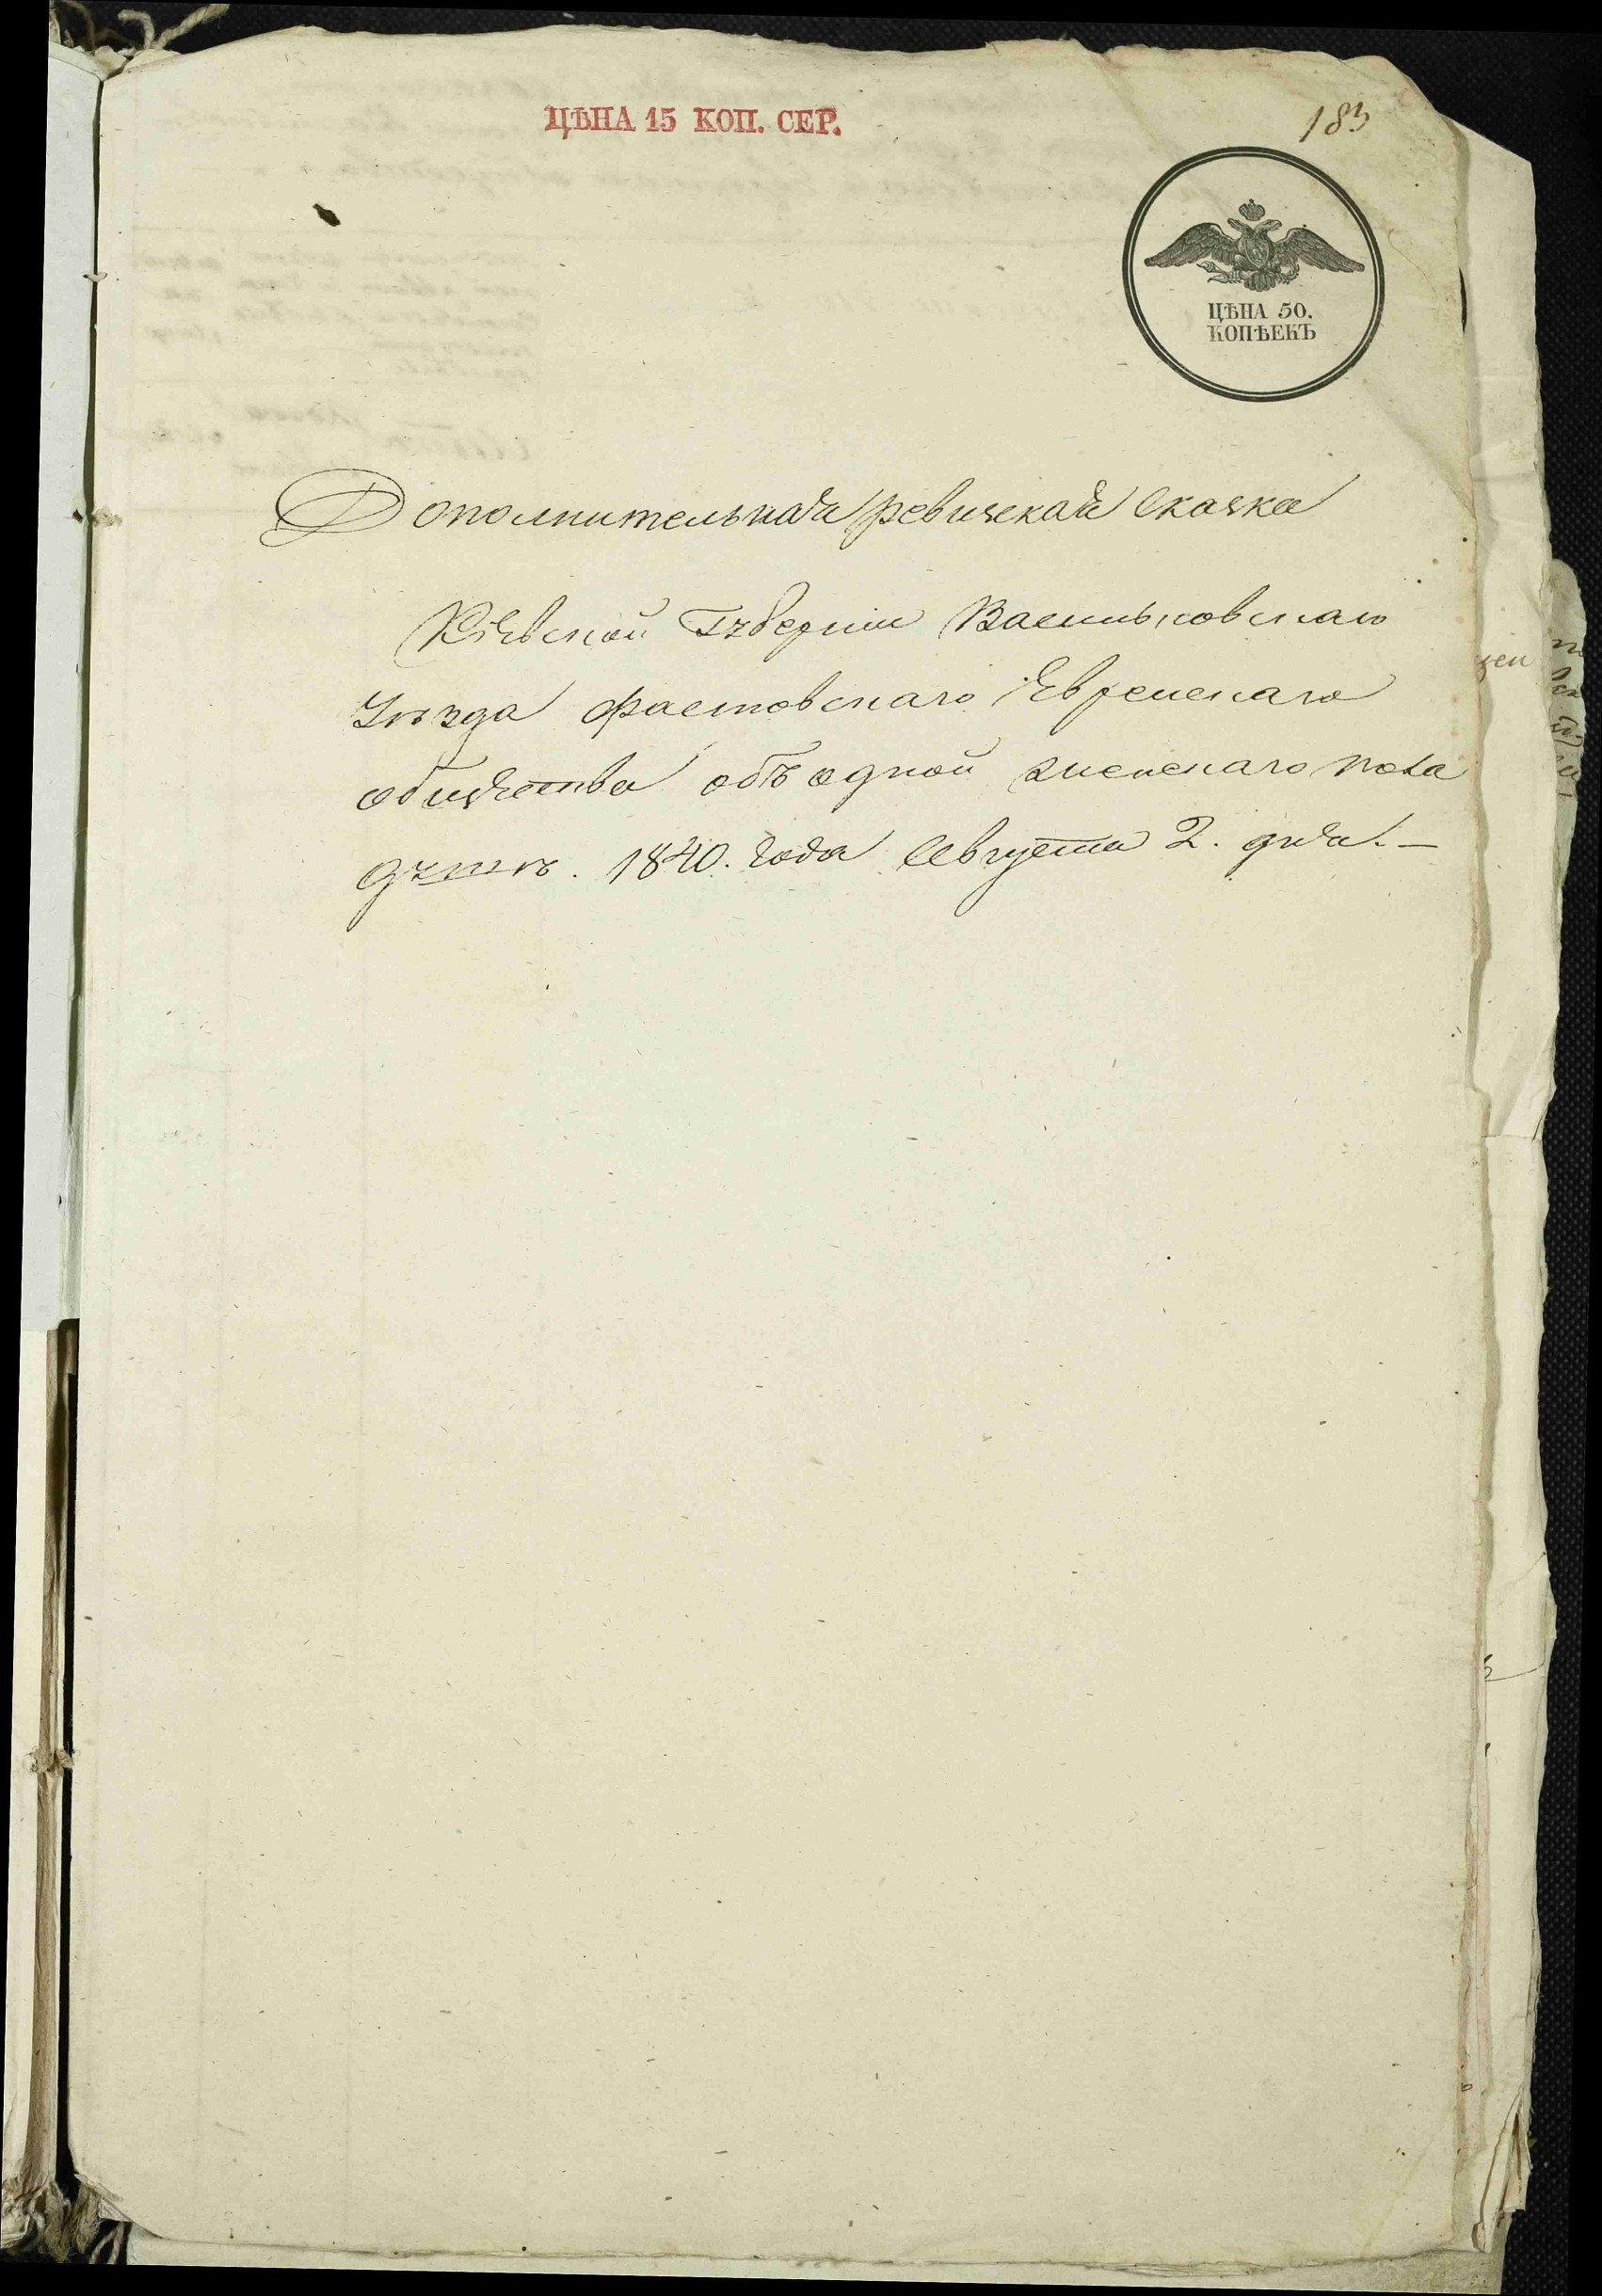 ЦѢНА 15 КОП. СЕР.
183
ЦѢНА 50.
КОПѢЕКЪ
Дополнительная ревизская сказка
Кіевской Губерніи Васильковскаго
Уѣзда Фастовскаго Еврейскаго
общества объ одной женскаго пола
душѣ. 1840. года Августа 2. дня.—